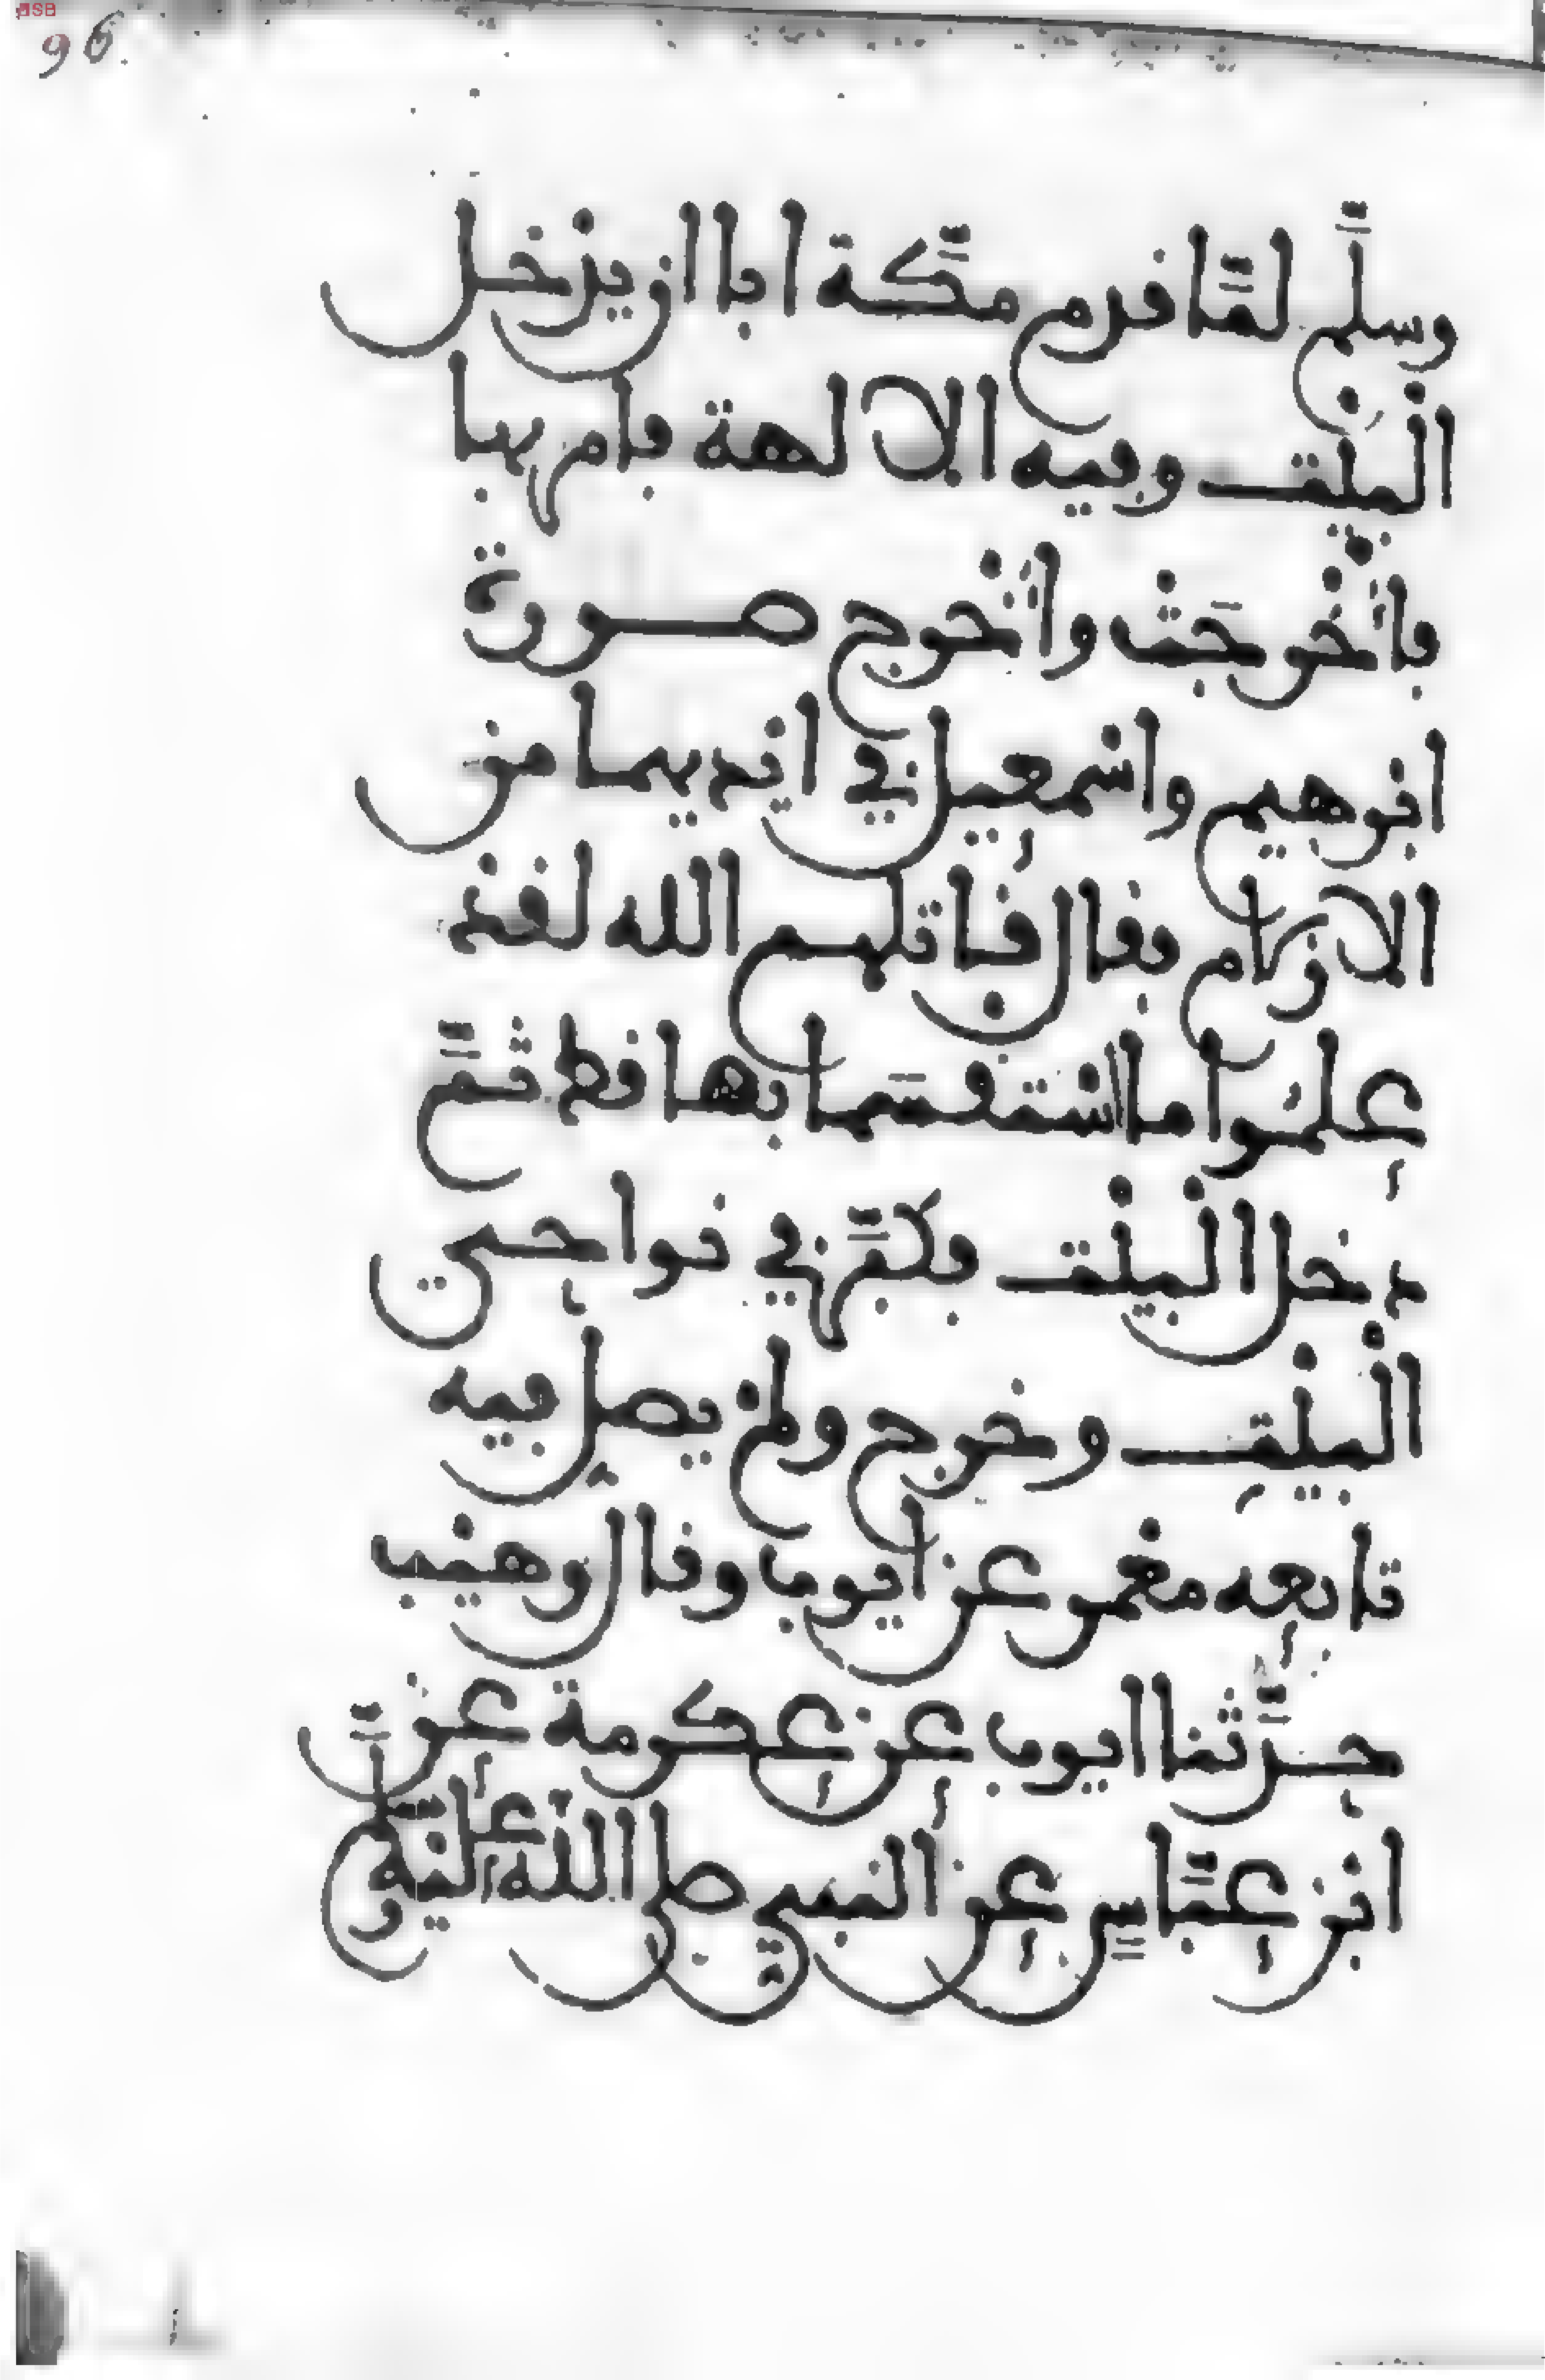 96
وسلَّم لمَّا قدم مكَّة ابا ان يدخل
الْبيْت وفيه الالهة فامر بها
فأخْرجَتْ وأخْرج صورة
ابْرهيم واسْمعيل في ايْديهما من
الازلام فقال قاتلهم الله لقدْ
علمُوا ما اسْتقْسَما بها قط ثمَّ
دخل الْبيْت فكبَّر في نواحي
الْبيْتِ وخرج ولمْ يصلِ فيه
تابعه معْمر عن ايوب وقال وهيْب
حدَّثنا ايوب عن عكرمة عن
ابْن عبَّاسٍ عن النبي صلى اللهُ عليْه وسلَّم